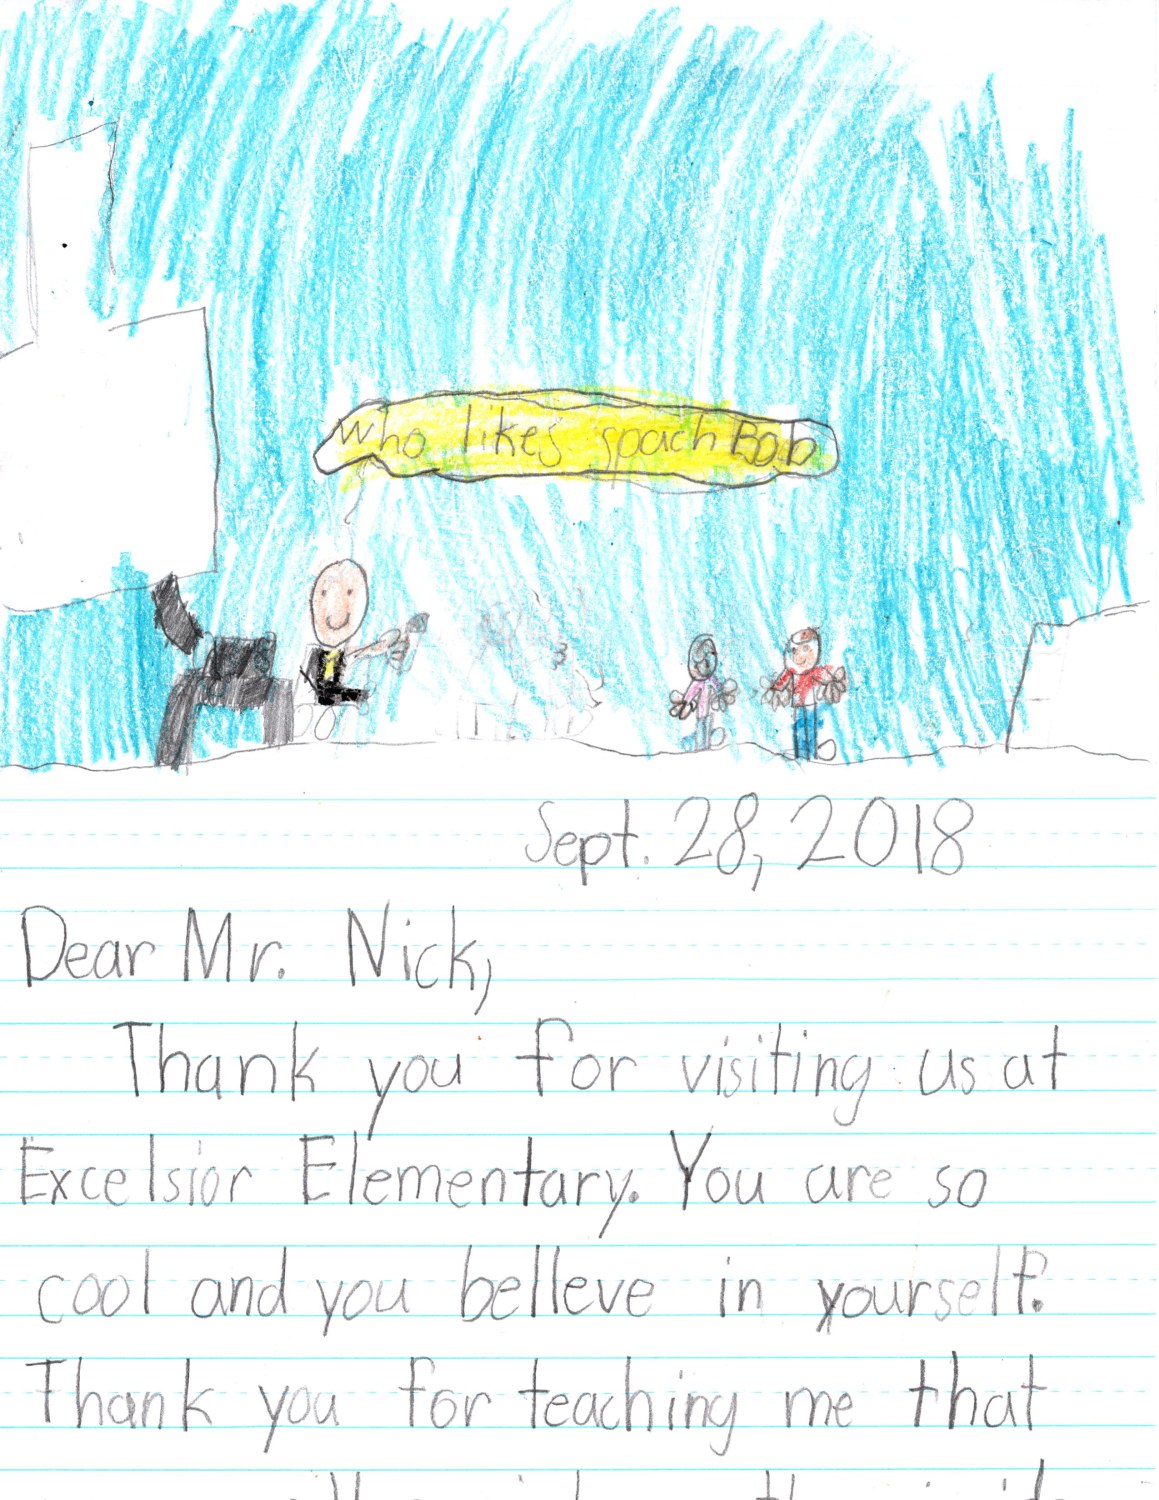 who likes spach Bob
Sept. 28, 2018
Dear Mr. Nick,
Thank you for visiting us at
Excelsior Elementary. You are so
cool and you belleve in yourself.
Thank you for teaching me that